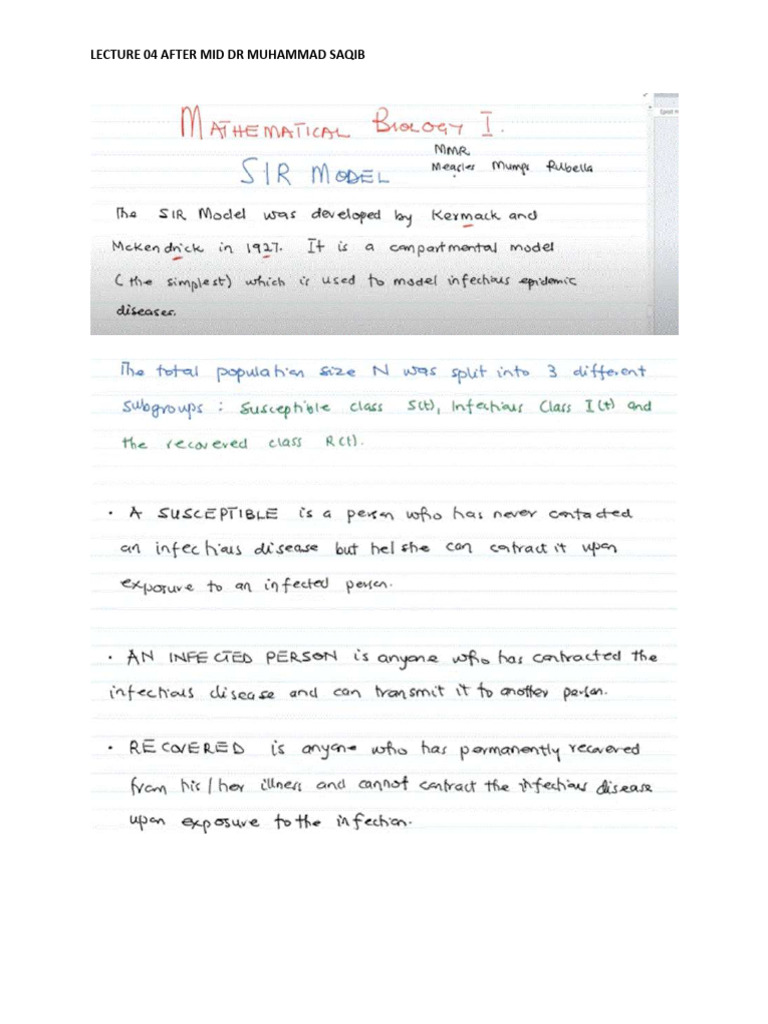 LECTURE 04 AFTER MID DR MUHAMMAD SAQIB
MATHEMATICAL BIOLOGY I.
MMR
SIR MODEL
Measles Mumps Rubella
The SIR Model was developed by Kermack and
McKendrick in 1927. It is a compartmental model
(the simplest) which is used to model infectious epidemic
diseases.
The total population size N was split into 3 different
subgroups : Susceptible class S(t), Infectious Class I(t) and
the recovered class R(t).
• A SUSCEPTIBLE is a person who has never contacted
an infectious disease but he/she can contract it upon
exposure to an infected person.
• AN INFECTED PERSON is anyone who has contracted the
infectious disease and can transmit it to another person.
• RECOVERED is anyone who has permanently recovered
from his/her illness and cannot contract the infectious disease
upon exposure to the infection.